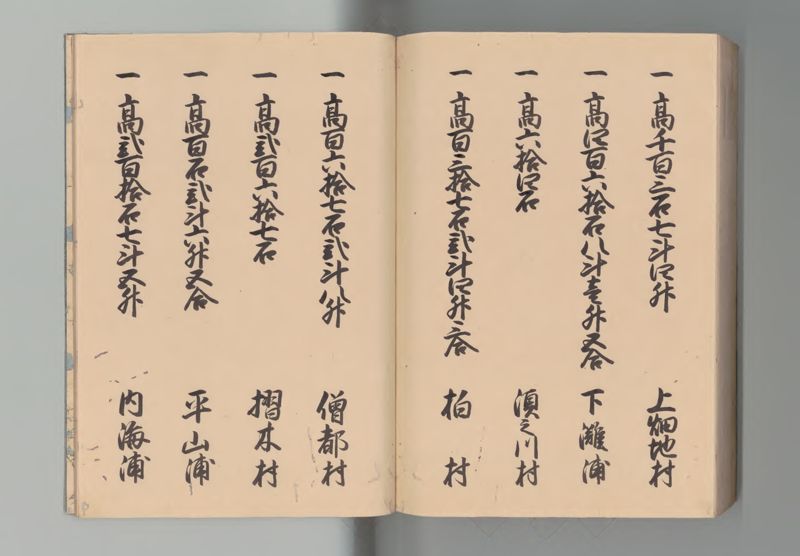 一 高千百三石七斗四升 上畑地村
一 高四百六拾石八斗壱升五合 下灘浦
一 高六拾四石 須之川村
一 高百三拾七石弐斗四升三合 柏村
一 高百六拾七石弐斗八升 僧都村
一 高弐百六拾七石 摺木村
一 高百石弐斗六升五合 平山浦
一 高弐百拾石七斗五升 内海浦